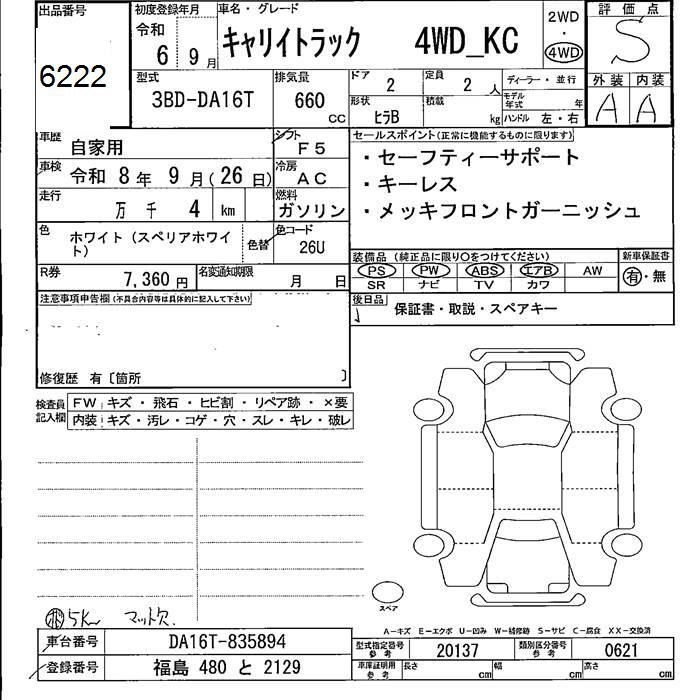 出品番号
6222
初度登録年月
令和
6 9 月
車名・グレード
キャリイトラック 4WD_KC
2WD
・
4WD
評価点
S
外装 内装
A A
型式
3BD-DA16T
排気量
660
CC
ドア
2
定員
2 人
形状
ヒラB
積載
kg
ディーラー・並行
モデル年式 年
ハンドル 左・右
車歴
自家用
シフト
F5
車検
令和 8 年 9 月 ( 26 日)
冷房
AC
走行
万 千 4 km
燃料
ガソリン
色
ホワイト(スペリアホワイト)
色替
色コード
26U
R券
7,360 円
名変通知期限
月 日
セールスポイント(正常に機能するものに限ります)
・セーフティーサポート
・キーレス
・メッキフロントガーニッシュ
装備品 (純正品に限り○をつけてください)
PS PW ABS エアB AW
SR ナビ TV カワ
新車保証書
有・無
後日品
保証書・取説・スペアキー
注意事項申告欄(不具合内容等は具体的に記入して下さい)
修復歴 有〔箇所 〕
検査員記入欄
FW キズ・飛石・ヒビ割・リペア跡・×要
内装 キズ・汚レ・コゲ・穴・スレ・キレ・破レ
5K マット欠
スペア
A-キズ E-エクボ U-凹み W-補修跡 S-サビ C-腐食 XX-交換済
車台番号 DA16T-835894
登録番号 福島 480 と 2129
型式指定番号 参考 20137
類別区分番号 参考 0621
車庫証明用 参考
長さ cm 幅 cm 高さ cm